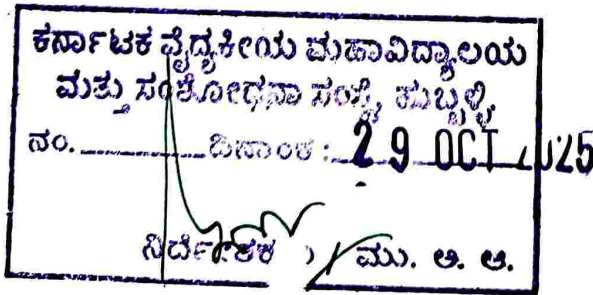 ಕರ್ನಾಟಕ ವೈದ್ಯಕೀಯ ಮಹಾವಿದ್ಯಾಲಯ
ಮತ್ತು ಸಂಶೋಧನಾ ಸಂಸ್ಥೆ, ಹುಬ್ಬಳ್ಳಿ
ನಂ. ದಿನಾಂಕ : 29 OCT 2025
ನಿರ್ದೇಶಕ / ಮು. ಆ. ಆ.